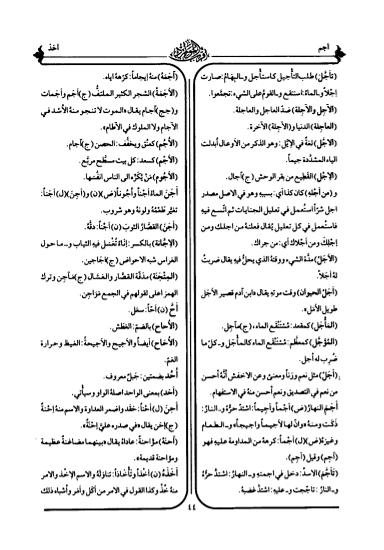 أجم
أخذ
(تأجَّلَ) طلب التأجيل كاستأجل و ـ البهائمُ: صارت
إجلاً و ـ الماءُ: استنقع و ـ القومُ على الشيء: تجمّعوا.
(الآجِل والآجِلَة) ضدّ العاجل والعاجلة.
(العاجِلَة) الدنيا و(الآجِلَة) الآخرة.
(الاجَّل) لغةً في الإيّل: وهو الذكر من الأوعال أبدلت
الياء المشدّدة جيماً.
(الإجْل) القطيع من بقر الوحش (ج) آجال.
و(من أجْلِهِ) كان كذا أي: بسببه وهو في الاصل مصدر
اجل شرّاً استُعمل في تعليل الجنايات ثم اتّسع فيه
فاستُعمل في كل تعليل يُقال فعلته من اجلك ومن
إجْلِكَ ومن أجلاك أي: من جراك.
(الأَجَل) مدّة الشيء ووقتهُ الذي يحلّ فيه يقال ضربتُ
لهُ أجلاً.
(أجَل الحيوان) وقت موته يقال «ابن آدم قصير الأجل
طويل الأمل».
(المأجَل) كمقعد: مُستَنْقَع الماء، (ج) مآجل.
(المؤجَّل) كمعظّم: مُسْتَنْقَع الماء كالمأجل و ـ كل ما
ضُرِب له أجل.
(أجَلْ) مثل نعم وزناً ومعنىً وعن الاخفش أنَّهُ أحسن
من نعم في التصديق ونعم أحسن منهُ في الاستفهام.
أجَمَ النهارُ (ض) أجْماً وأجيماً: اشتدّ حرّهُ و ـ النارُ:
ذكت ومنه «وانّ لها لأجيماً وأجيجاً» و ـ الطعامَ
وغيرَهُ (ض)(ل) أجْماً: كرهه من المداومة عليه فهو
(أجِم) وقيل (أجم).
(تأجَّمَ) الاسدُ: دخل في اجمتهِ و ـ النهارُ: اشتدّ حرّهُ
و ـ النارُ: تأججت و ـ عليه: اشتدّ غضبهُ.
(آجَمَهُ) منهُ إيجاماً: كرّههُ اياه.
(الأجَمَة) الشجر الكثير الملتفّ (ج) أجم وأجمات
و(جج) آجام يقال «الموت لا تنجو منهُ الأُسد في
الآجام ولا الملوك في الآطام».
(الأُجُم) كعنُق ويخفّف: الحصن (ج) آجام.
(الأَجم) كسعد: كل بيت مسطّح مربّع.
(الأَجُوم) مَنْ يُكَرِّه الى الناس انفُسَها.
أجَنَ الماءُ أجْناً وأُجوناً (ض)(ن) و(أجِنَ)(ل) أجَناً:
تغيّر طعمُهُ ولونهُ وهو شروب.
(أجَنَ) القصّارُ الثوبَ (ن) أجْناً: دقّهُ.
(الإجّانة) بالكسر: إناءٌ تُغْسَل فيه الثياب و ـ ما حول
الغراس شبه الاحواض (ج) اجاجين.
(المِئْجَنَة) مدقّة القصّار والغسّال (ج) مآجِن وترك
الهمز اعلى لقولهم في الجمع مَواجِن.
أَحَّ (ن) أحّاً: سعل.
(الأُحاح) بالضم: العَطَش.
(الأُحاح) أيضاً والأحيح والأحيحة: الغيظ وحرارة
الغمّ.
أُحُد بضمتين: جبل معروف.
(أحَد) بمعنى الواحد اصلهُ الواو وسيأتي.
أحِنَ (ل) أحَناً: حقد واضمر العداوة والاسم منهُ إحْنَة
(ج) إحَن يقال «وفي صدره عليَّ إحْنَة».
(آحَنَهُ) مؤاحنةً: عاداهُ يقال «بينهما مضاغنة عظيمة
ومؤاحنة قديمة».
أَخَذَهُ (ن) اخْذاً وتأخاذاً: تناولَهُ والاسم الإخْذ والامر
منهُ خُذْ وكذا القول في الامر من أكل وأمر وأشباه ذلك
٤٤